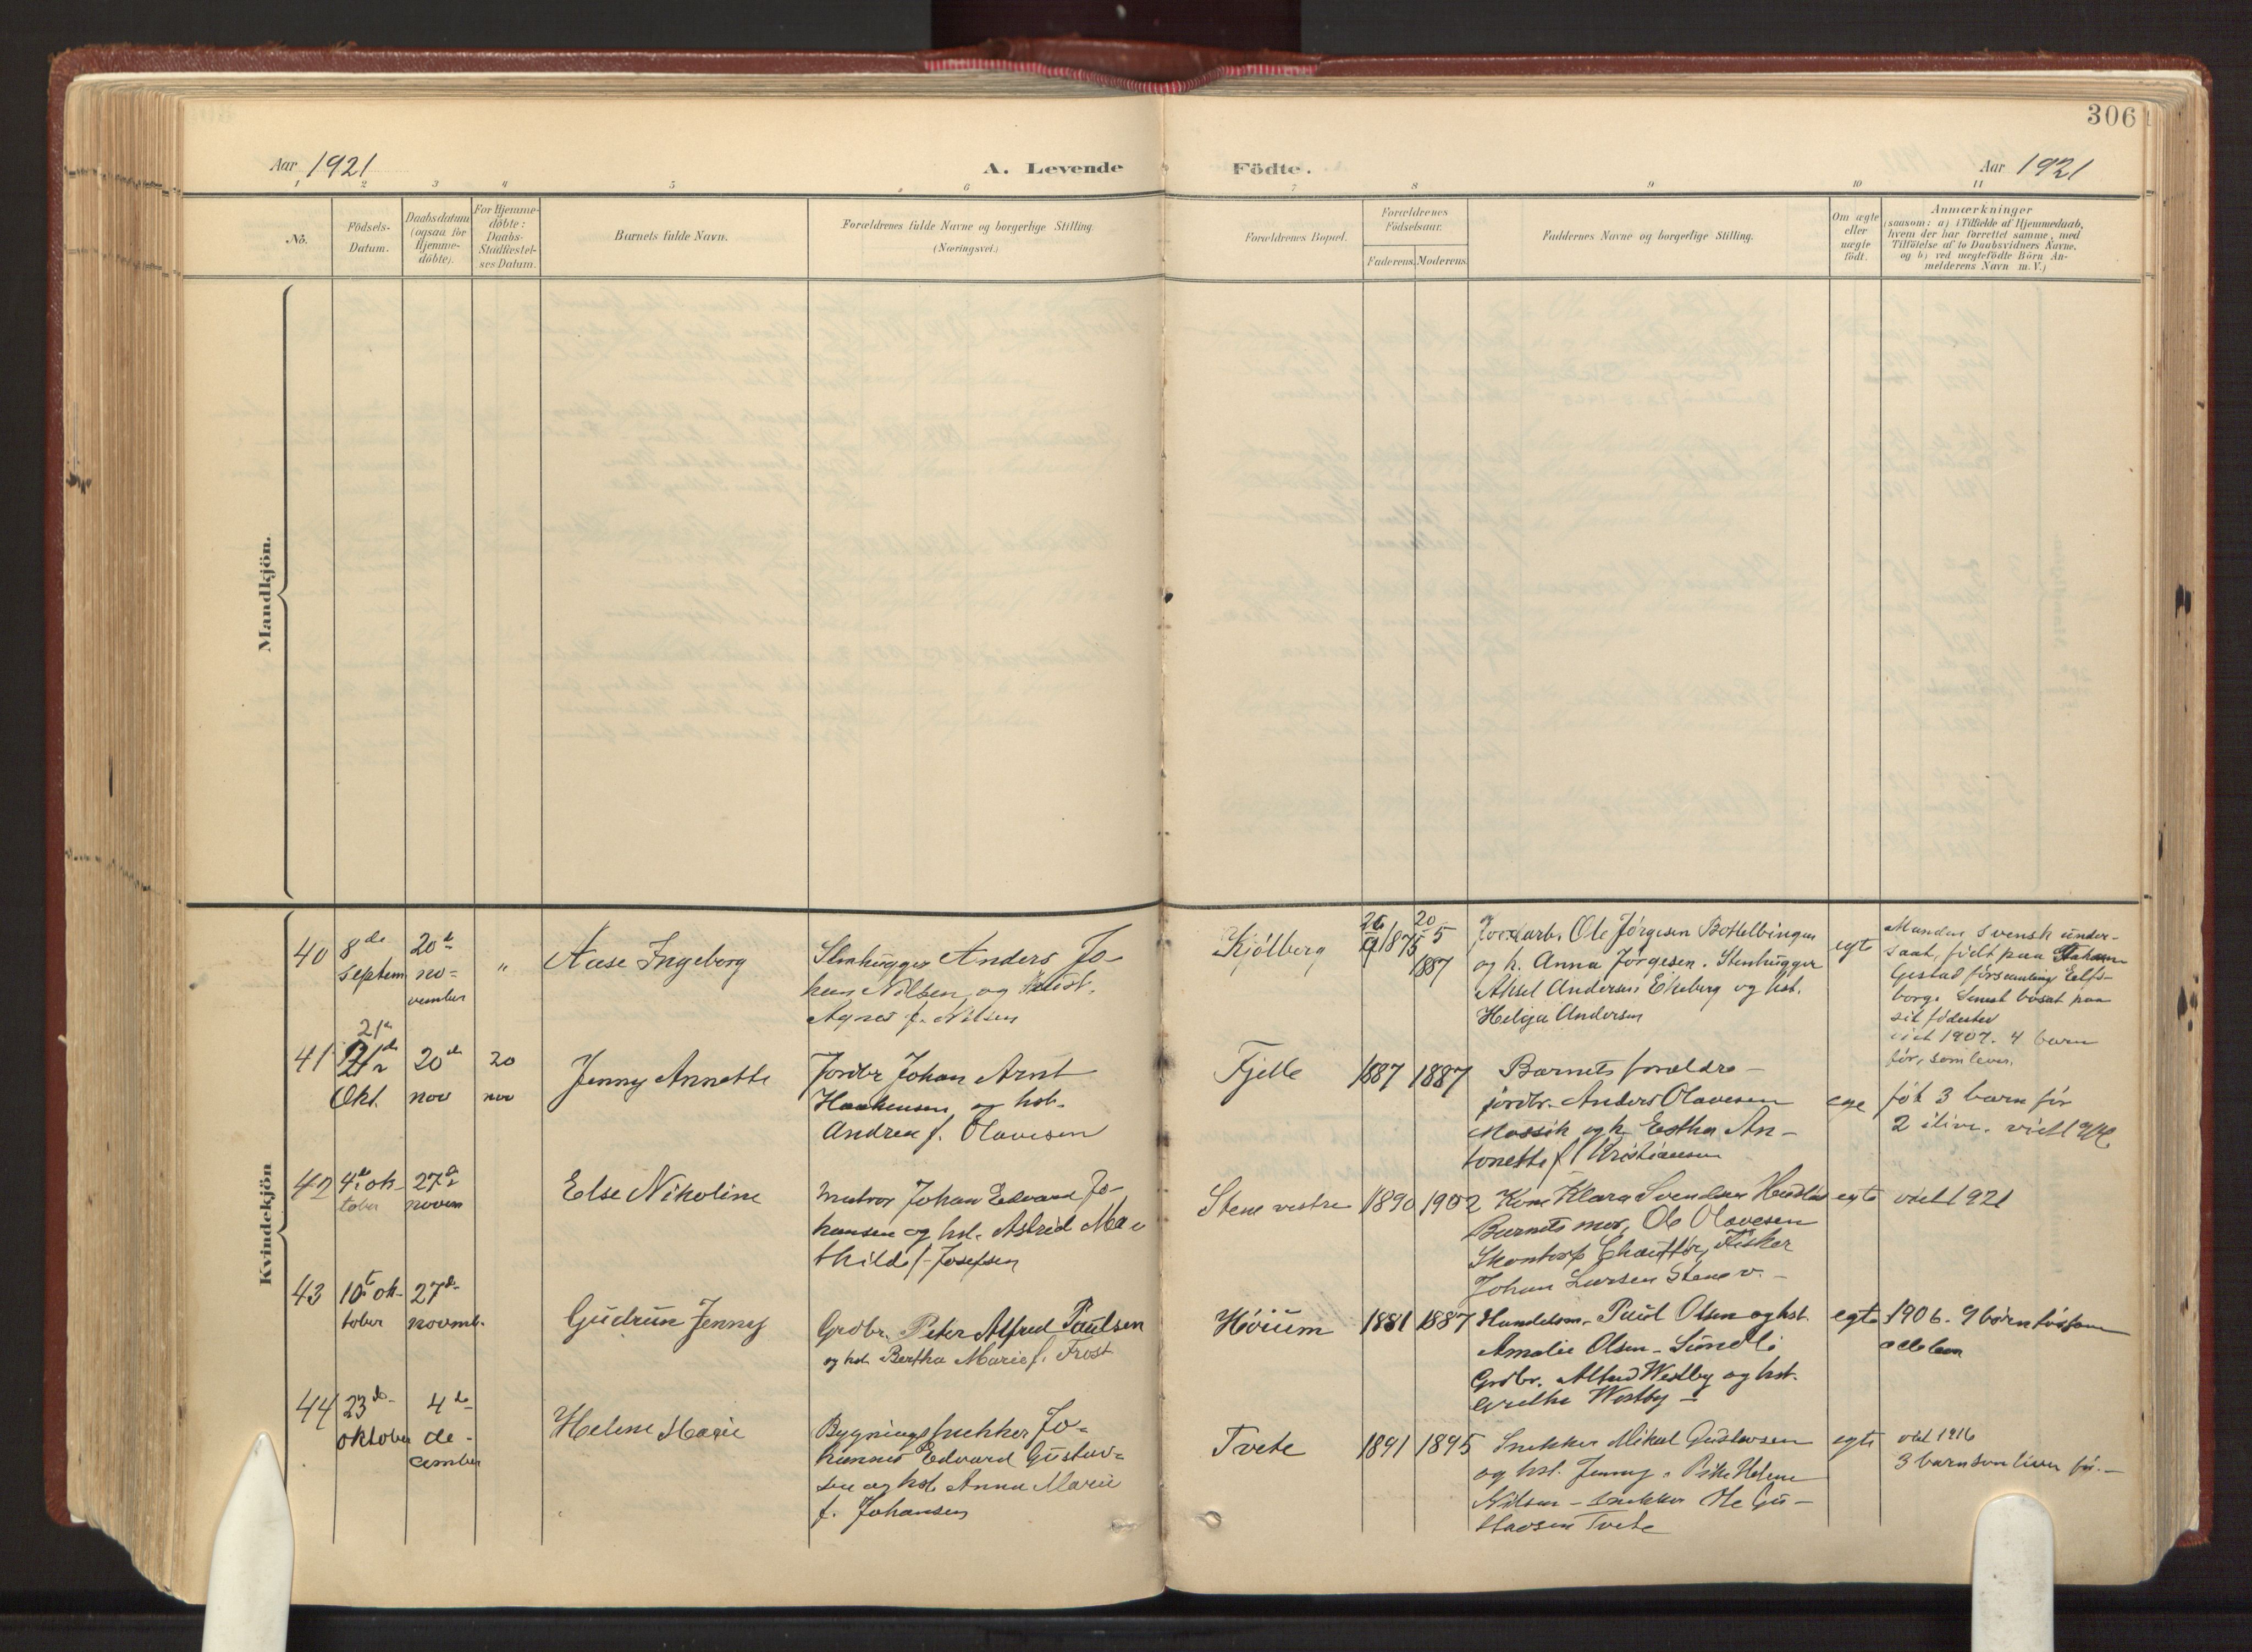 306
Aar 1921
A. Levende
Födte.
Aar 1921
1 2 3 4 5 6 7 8 9 10 11
No.
Födsels-
Datum.
Daabsdatum
(ogsaa for
Hjemme-
döbte).
For Hjemme-
döbte:
Daabs-
Stadfæstel-
ses Datum.
Barnets fulde Navn.
Forældrenes fulde Navne og borgerlige Stilling.
(Næringsvei.)
Forældrenes Bopæl.
Forældrenes
Födselsaar.
Faderens. Moderens.
Faddernes Navne og borgerlige Stilling.
Om ægte
eller
uægte
födt.
Anmærkninger
(saasom: a) i Tilfælde af Hjemmedaab,
hvem der har forrettet samme, med
Tilföielse af to Daabsvidners Navne,
og b) ved uægtefödte Börn An-
melderens Navn m. V.)
Mandkjön.
Kvindekjön
40
8de
septem
20d
no-
vember
"
Aase Ingeborg
Stenhugger Anders Jo-
han Nilsen og hust.
Agnes f. Nilsen
Kjölberg
1875
20
5
1887
Jordarb. Ole Jørgesen
og h. Anna Jørgesen. Stenhugger
Aksel Andersen Ekeberg og hst.
Helga Andersen
egte
Manden svensk under-
saat, født paa
Gestad församling Elfs-
borg. Senest bosat paa
sit fødested
viet 1907. 4 barn
før, som lever.
41
21d
Okt.
20d
nov
20
nov
Jenny Annette
Jordbr Johan Arnt
Haakensen og hst.
Andrea f. Olavesen
Fjelle
1887
1887
Barnets forældre -
jordbr. Anders Olavesen
og h. Esther An-
tonette f. Kristiansen
født 3 barn før
2 ilive. viet
42
4d ok-
tober
27d
novem
Else Nikoline
matros Johan Edvard Jo-
hansen og hst. Astrid Ma-
thilde f. Josefsen
Stene vestre
1890
1902
Kone Klara Svendsen
Barnets mor, Ole Olavesen
Skontorp Chauffør, Fisker
Johan Larsen Stene v. -
egte
viet 1921
43
10d ok-
tober
27d
novmb.
Gudrun Jenny
Grdbr. Peter Alfred Paulsen
og hst. Bertha Marie f. Frost
Høium
1881
1887
Handelsm. Paul Olsen og hst.
Amalie Olsen - Sundli
Grdbr. Alfred Westby og hst.
Grethe Westby -
egte
1906. 9 börn før som
alle lever
44
23de
oktober
4de
de-
cember
Helene Marie
Bygningssnekker Jo-
hannes Edvard Gustav-
sen og hst. Anna Marie
f. Johansen
Tvete
1891
1895
Snekker Mikal Gustavsen
og hst. Jenny. Pike Helene
Nilsen - snekker Ole Gu-
stavsen Tvete
egte
viet 1916
3 barn som lever før. -